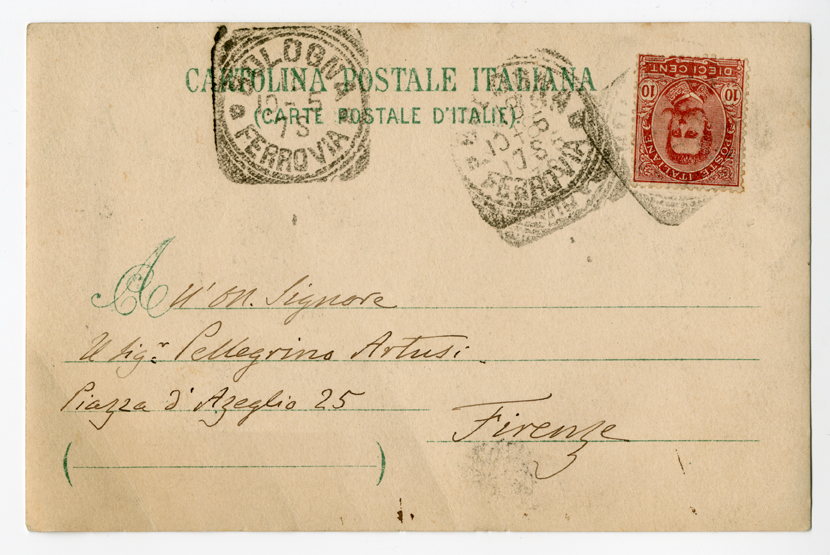 CARTOLINA POSTALE ITALIANA
(CARTE POSTALE D'ITALIE)
BOLOGNA
10-5
FERROVIA
BOLOGNA
FERROVIA
DIECI CENT.
10 10
POSTE ITALIANE
All' On. Signore
Il Sigr. Pellegrino Artusi
Piazza d'Azeglio 25
Firenze